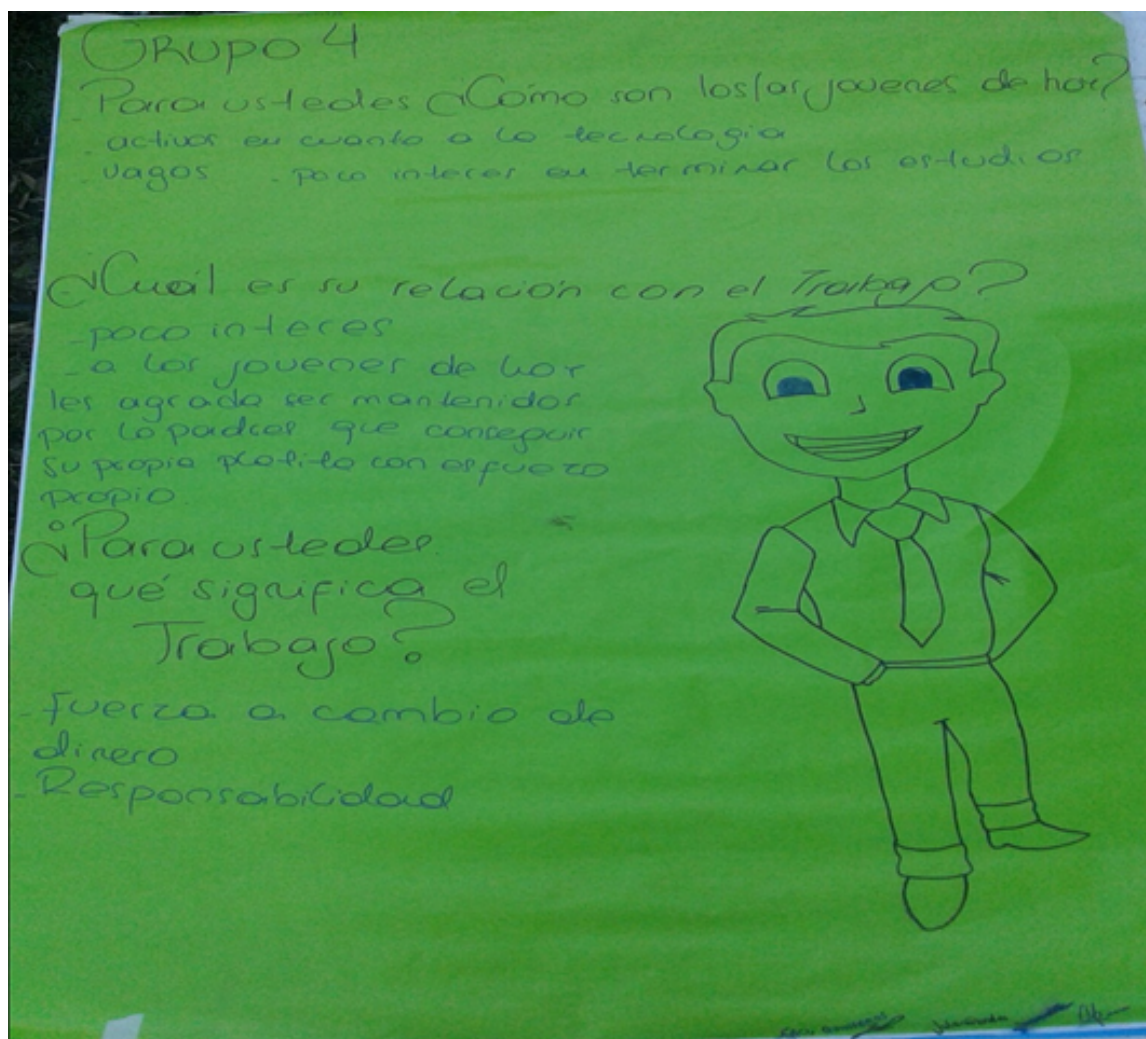 GRUPO 4
Para ustedes ¿Cómo son los/as jovenes de hoy?
- activos en cuanto a la tecnologia
- vagos - poco interes en terminar los estudios
¿Cuál es su relación con el Trabajo?
- poco interes
- a los jovenes de hoy
les agrada ser mantenidos
por lo padres que conseguir
su propia platita con esfuerzo
propio.
¿Para ustedes
qué significa el
Trabajo?
- Fuerza a cambio de
dinero
- Responsabilidad